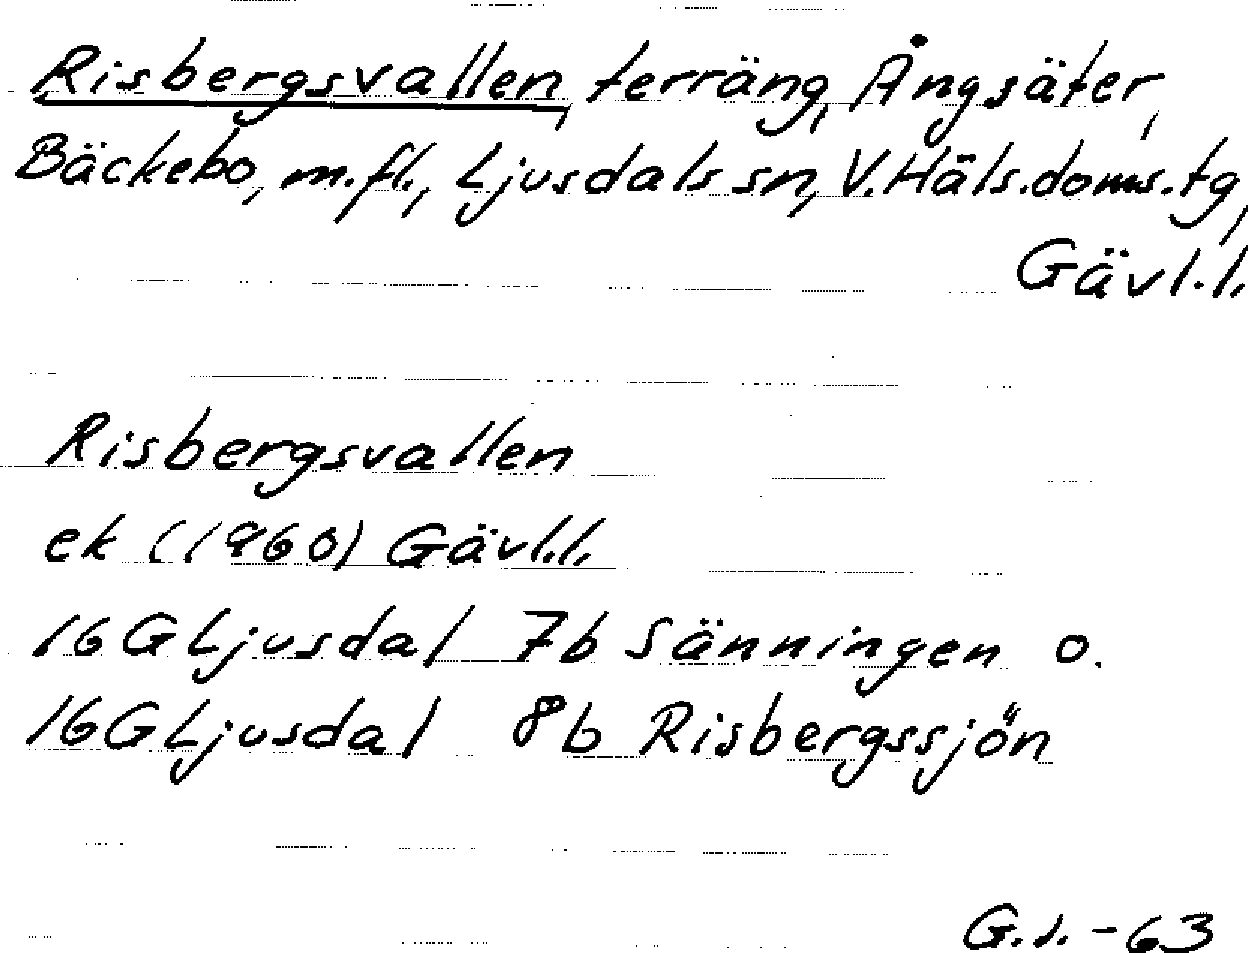 Risbergsvallen, terräng, Ångsäter,
Bäckebo, m.fl., Ljusdals sn, V. Häls. doms. tg,
Gävl.l.
Risbergsvallen
ek (1960) Gävl.l.
16G Ljusdal 7b Sänningen o.
16G Ljusdal 8b Risbergssjön
-63